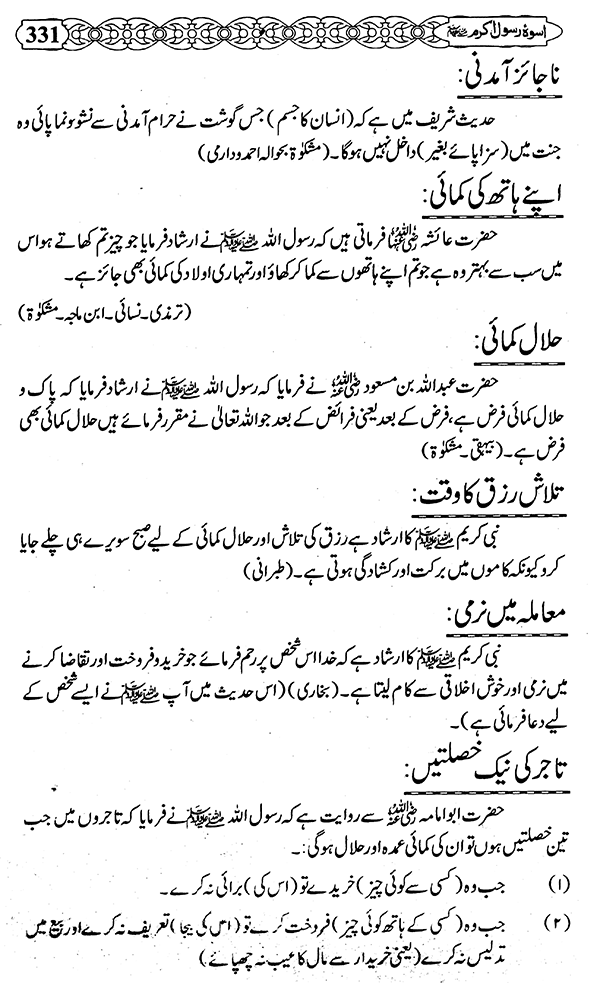 اسوۂ رسول اکرم ﷺ
331
ناجائز آمدنی:
حدیث شریف میں ہے کہ (انسان کا جسم) جس گوشت نے حرام آمدنی سے نشوونما پائی وہ
جنت میں (سزا پائے بغیر) داخل نہیں ہوگا۔ (مشکوٰۃ بحوالہ احمد و دارمی)
اپنے ہاتھ کی کمائی:
حضرت عائشہ رضی اللہ عنہا فرماتی ہیں کہ رسول اللہ ﷺ نے ارشاد فرمایا جو چیز تم کھاتے ہو اس
میں سب سے بہتر وہ ہے جو تم اپنے ہاتھوں سے کما کر کھاؤ اور تمہاری اولاد کی کمائی بھی جائز ہے۔
(ترمذی۔ نسائی۔ ابن ماجہ۔ مشکوٰۃ)
حلال کمائی:
حضرت عبداللہ بن مسعود رضی اللہ عنہ نے فرمایا کہ رسول اللہ ﷺ نے ارشاد فرمایا کہ پاک و
حلال کمائی فرض ہے، فرض کے بعد یعنی فرائض کے بعد جو اللہ تعالیٰ نے مقرر فرمائے ہیں حلال کمائی بھی
فرض ہے۔ (بیہقی۔ مشکوٰۃ)
تلاش رزق کا وقت:
نبی کریم ﷺ کا ارشاد ہے رزق کی تلاش اور حلال کمائی کے لیے صبح سویرے ہی چلے جایا
کرو کیونکہ کاموں میں برکت اور کشادگی ہوتی ہے۔ (طبرانی)
معاملہ میں نرمی:
نبی کریم ﷺ کا ارشاد ہے کہ خدا اس شخص پر رحم فرمائے جو خرید و فروخت اور تقاضا کرنے
میں نرمی اور خوش اخلاقی سے کام لیتا ہے۔ (بخاری) (اس حدیث میں آپ ﷺ نے ایسے شخص کے
لیے دعا فرمائی ہے)۔
تاجر کی نیک خصلتیں:
حضرت ابو امامہ رضی اللہ عنہ سے روایت ہے کہ رسول اللہ ﷺ نے فرمایا کہ تاجروں میں جب
تین خصلتیں ہوں تو ان کی کمائی عمدہ اور حلال ہوگی:۔
(۱) جب وہ (کسی سے کوئی چیز) خریدے تو (اس کی) برائی نہ کرے۔
(۲) جب وہ (کسی کے ہاتھ کوئی چیز) فروخت کرے تو (اس کی بیجا) تعریف نہ کرے اور بیع میں
تدلیس نہ کرے (یعنی خریدار سے مال کا عیب نہ چھپائے)